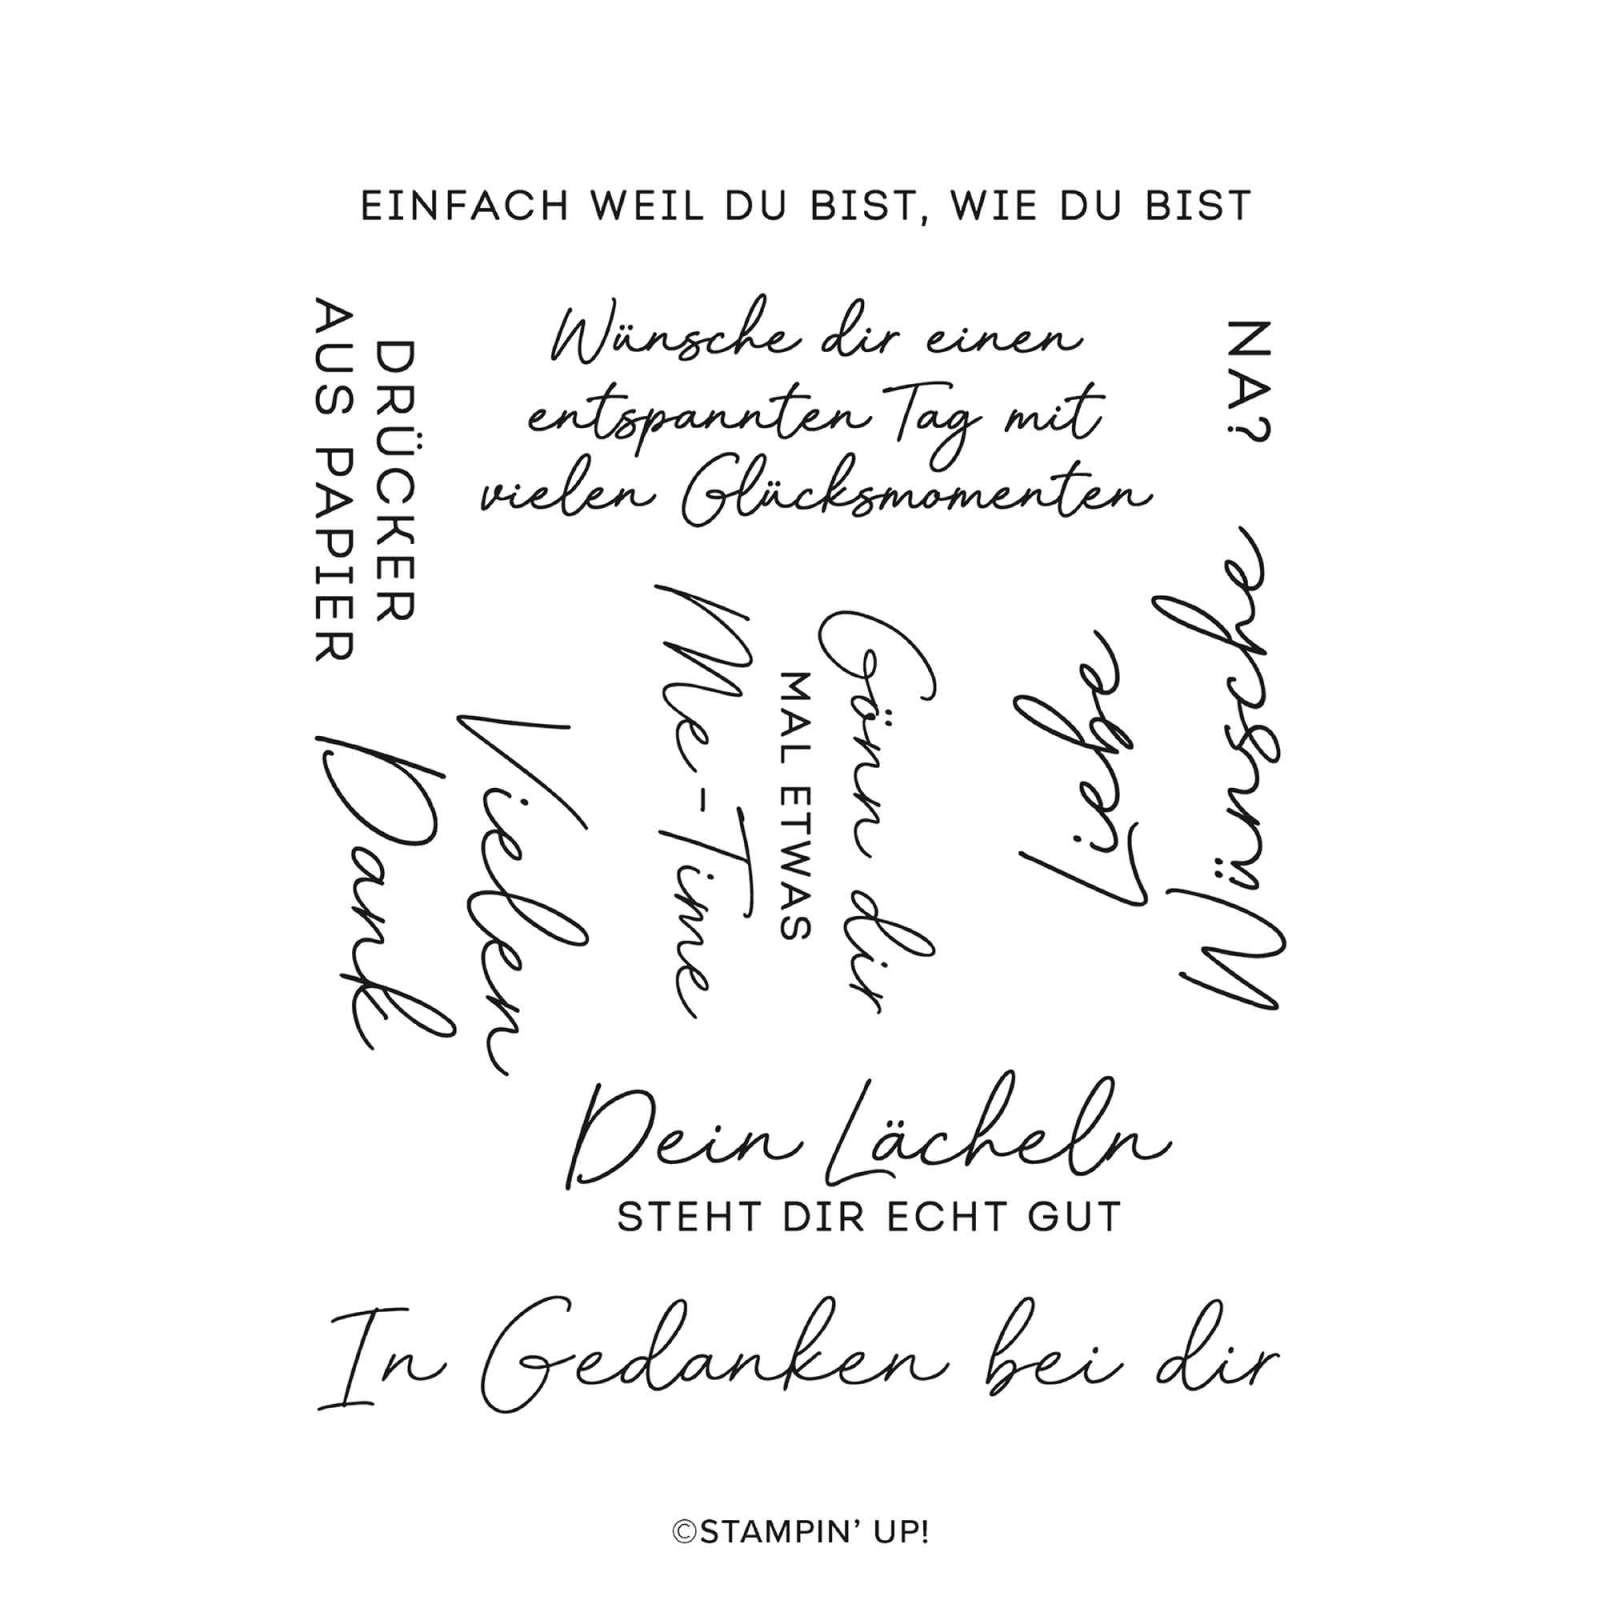 EINFACH WEIL DU BIST, WIE DU BIST
DRÜCKER
AUS PAPIER
Wünsche dir einen
entspannten Tag mit
vielen Glücksmomenten
NA?
Vielen
Dank
Gönn dir
MAL ETWAS
Me-Time
Liebe
Wünsche
Dein Lächeln
STEHT DIR ECHT GUT
In Gedanken bei dir
©STAMPIN' UP!